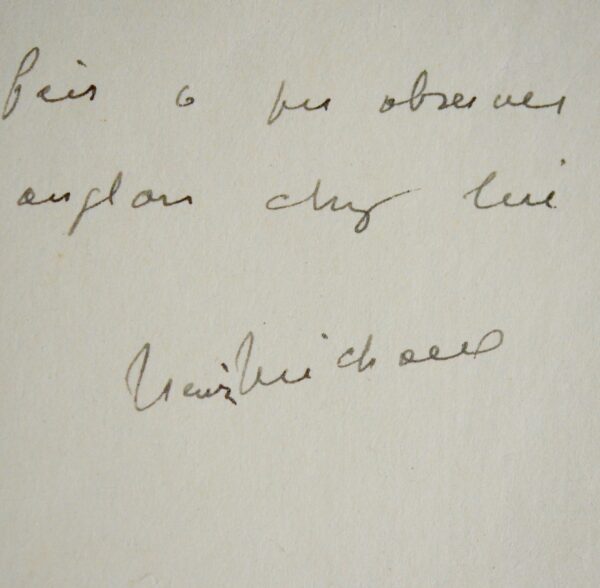 a pu observer
anglais chez lui
Henri Michaux